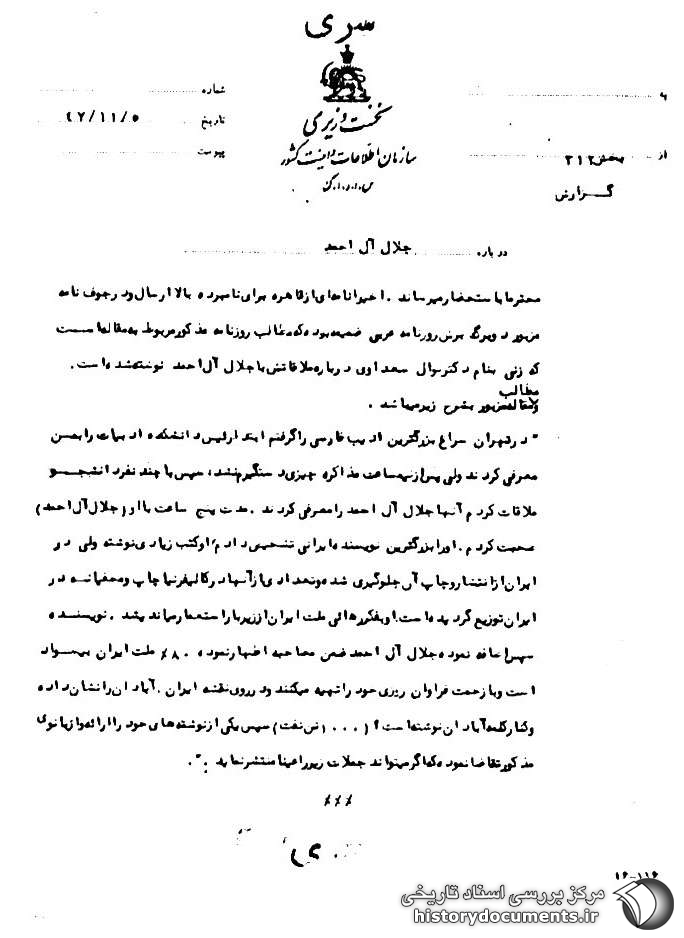 سری
شماره
تاریخ ۴۷/۱۱/۵
پیوست
نخست وزیری
سازمان اطلاعات و امنیت کشور
س.ا.و.ا.ک
از بخش ۳۱۲
گزارش
درباره جلال آل احمد
محترما باستحضار میرساند . اخیرا نامه‌ای از قاهره برای نامبرده بالا ارسال و در جوف نامه
مزبور دو برگ برش روزنامه عربی ضمیمه بوده که مطالب روزنامه مذکور مربوط به مقاله‌ایست
که زنی بنام دکتر نوال سعداوی درباره ملاقاتش با جلال آل احمد نوشته شده است .
مطالب
مقاله مزبور بشرح زیر میباشد .
" در تهران سراغ بزرگترین ادیب فارسی را گرفتم ابتدا رئیس دانشکده ادبیات را بمن
معرفی کردند ولی پس از نیمساعت مذاکره چیزی دستگیرم نشد، سپس با چند نفر دانشجو
ملاقات کردم آنها جلال آل احمد را معرفی کردند . مدت پنج ساعت با او (جلال آل احمد)
صحبت کردم . او را بزرگترین نویسنده ایرانی تشخیص دادم او کتب زیادی نوشته ولی در
ایران از انتشار و چاپ آن جلوگیری شده و تعدادی از آنها در کالیفرنیا چاپ و مخفیانه در
ایران توزیع گردیده است او بفکر رهائی ملت ایران از زیر بار استعمار میاندیشد . نویسنده
سپس اضافه نموده جلال آل احمد ضمن مصاحبه اظهار نموده ۸۰٪ ملت ایران بیسواد
است و با زحمت فراوان روزی خود را تهیه میکنند و در روی نقشه ایران . آبادان را نشان داده
و کنار کلمه آبادان نوشته است ؟ (۱۰۰۰ تن نفت) سپس یکی از نوشته‌های خود را ارائه و از بانوی
مذکور تقاضا نموده که اگر میتواند جملات زیر را عینا منتشر نماید . " .
۱۶-۱۱۶
مرکز بررسی اسناد تاریخی
historydocuments.ir